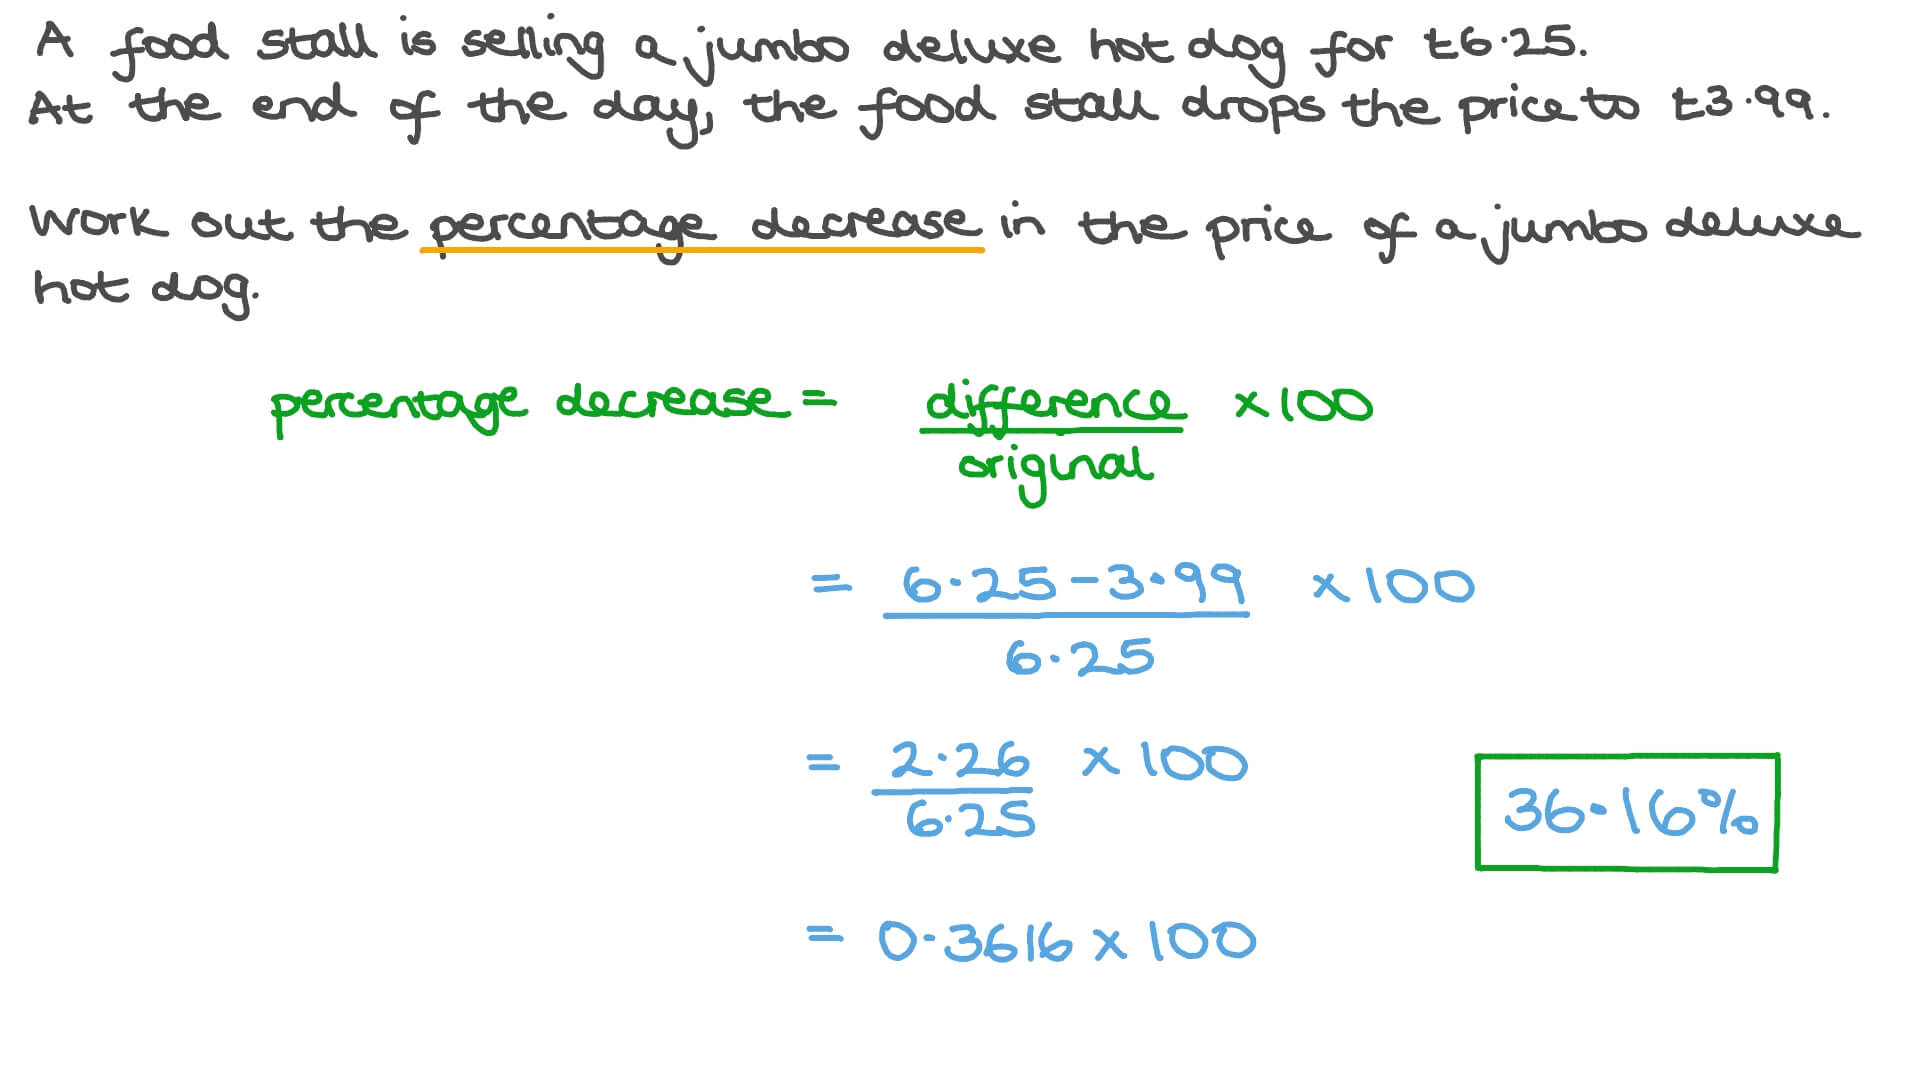 A food stall is selling a jumbo deluxe hot dog for £6.25.
At the end of the day, the food stall drops the price to £3.99.
Work out the percentage decrease in the price of a jumbo deluxe
hot dog.
percentage decrease = difference × 100
original
= 6.25 - 3.99 × 100
6.25
= 2.26 × 100
6.25
36.16%
= 0.3616 × 100